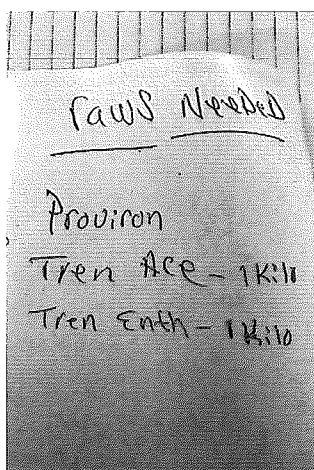 raws Needed
Proviron
Tren Ace - 1 Kilo
Tren Enth - 1 Kilo